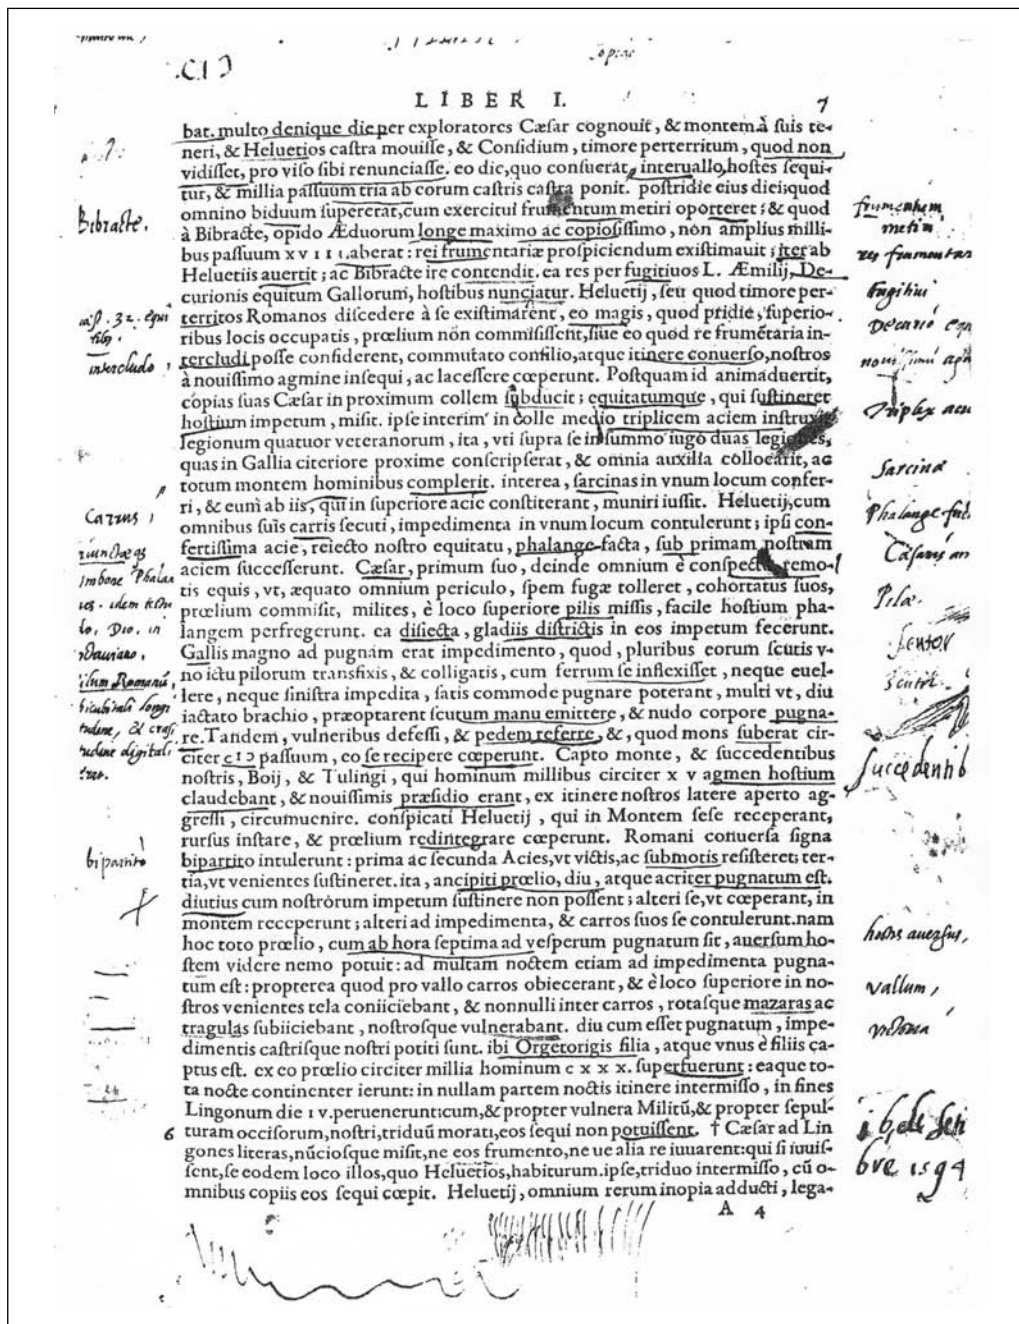 Copiae
.CIↃ
LIBER I. 7
bat. multo denique die per exploratores Cæsar cognouit, & montem à suis te-
neri, & Heluetios castra mouisse, & Considium, timore perterritum, quod non
vidisset, pro viso sibi renunciasse. eo die, quo consuerat, interuallo, hostes sequi-
tur, & millia passuum tria ab eorum castris castra ponit. postridie eius diei; quod
omnino biduum supererat, cum exercitui frumentum metiri oporteret; & quod
à Bibracte, opido Æduorum longe maximo ac copiosissimo, non amplius milli-
bus passuum XVIII. aberat: rei frumentariæ prospiciendum existimauit; iter ab
Heluetiis auertit; ac Bibracte ire contendit. ea res per fugitiuos L. Æmilij, De-
curionis equitum Gallorum, hostibus nunciatur. Heluetij, seu quod timore per-
territos Romanos discedere à se existimarent, eo magis, quod pridie, superio-
ribus locis occupatis, prœlium non commisissent, siue eo quod re frumētaria in-
tercludi posse confiderent, commutato consilio, atque itinere conuerso, nostros
à nouissimo agmine insequi, ac lacessere cœperunt. Postquam id animaduertit,
copias suas Cæsar in proximum collem subducit; equitatumque, qui sustineret
hostium impetum, misit. ipse interim in colle medio triplicem aciem instruxit
legionum quatuor veteranorum, ita, vti supra se in summo iugo duas legiones,
quas in Gallia citeriore proxime conscripserat, & omnia auxilia collocarit, ac
totum montem hominibus complerit. interea, sarcinas in vnum locum confer-
ri, & eum ab iis, qui in superiore acie constiterant, muniri iussit. Heluetij, cum
omnibus suis carris secuti, impedimenta in vnum locum contulerunt; ipsi con-
fertissima acie, reiecto nostro equitatu, phalange facta, sub primam nostram
aciem successerunt. Cæsar, primum suo, deinde omnium è conspectu remo-
tis equis, vt, æquato omnium periculo, spem fugæ tolleret, cohortatus suos,
prœlium commisit, milites, è loco superiore pilis missis, facile hostium pha-
langem perfregerunt. ea disiecta, gladiis districtis in eos impetum fecerunt.
Gallis magno ad pugnam erat impedimento, quod, pluribus eorum scutis v-
no ictu pilorum transfixis, & colligatis, cum ferrum se inflexisset, neque euel-
lere, neque sinistra impedita, satis commode pugnare poterant, multi vt, diu
iactato brachio, præoptarent scutum manu emittere, & nudo corpore pugna-
re. Tandem, vulneribus defessi, & pedem referre, &, quod mons suberat cir-
citer CIↃ passuum, eo se recipere cœperunt. Capto monte, & succedentibus
nostris, Boij, & Tulingi, qui hominum millibus circiter XV agmen hostium
claudebant, & nouissimis præsidio erant, ex itinere nostros latere aperto ag-
gressi, circumuenire. conspicati Heluetij, qui in Montem sese receperant,
rursus instare, & prœlium redintegrare cœperunt. Romani conuersa signa
bipartito intulerunt: prima ac secunda Acies, vt victis, ac submotis resisteret; ter-
tia, vt venientes sustineret. ita, ancipiti prœlio, diu, atque acriter pugnatum est.
diutius cum nostrorum impetum sustinere non possent; alteri se, vt cœperant, in
montem receperunt; alteri ad impedimenta, & carros suos se contulerunt. nam
hoc toto prœlio, cum ab hora septima ad vesperum pugnatum sit, auersum ho-
stem videre nemo potuit: ad multam noctem etiam ad impedimenta pugna-
tum est: propterea quod pro vallo carros obiecerant, & è loco superiore in no-
stros venientes tela coniiciebant, & nonnulli inter carros, rotasque mazaras ac
tragulas subiiciebant, nostrosque vulnerabant. diu cum esset pugnatum, impe-
dimentis castrisque nostri potiti sunt. ibi Orgetorigis filia, atque vnus è filiis ca-
ptus est. ex eo prœlio circiter millia hominum CXXX. superfuerunt: eaque to-
ta nocte continenter ierunt: in nullam partem noctis itinere intermisso, in fines
Lingonum die IV. peruenerunt; cum, & propter vulnera Militū, & propter sepul-
6 turam occisorum, nostri, triduū morati, eos sequi non potuissent. † Cæsar ad Lin
gones literas, nūciosque misit, ne eos frumento, ne ue alia re iuuarent: qui si iuuis-
sent, se eodem loco illos, quo Heluetios, habiturum. ipse, triduo intermisso, cū o-
mnibus copiis eos sequi cœpit. Heluetij, omnium rerum inopia adducti, lega-
A 4
Bibracte.
intercludo,
Carrus,
Phalan
in
ilum Romanū,
bicubitali longi
tudine, & crassi
tudine digitali
bipartito
frumentum
metiri
res frumentar
Fugitiui
Decurió equ
nouissimū agm
Triplex acies
Sarcinæ
Phalange fact
Cæsaris an
Pila.
Succedentib
hostis auersus,
vallum,
victoria
1594